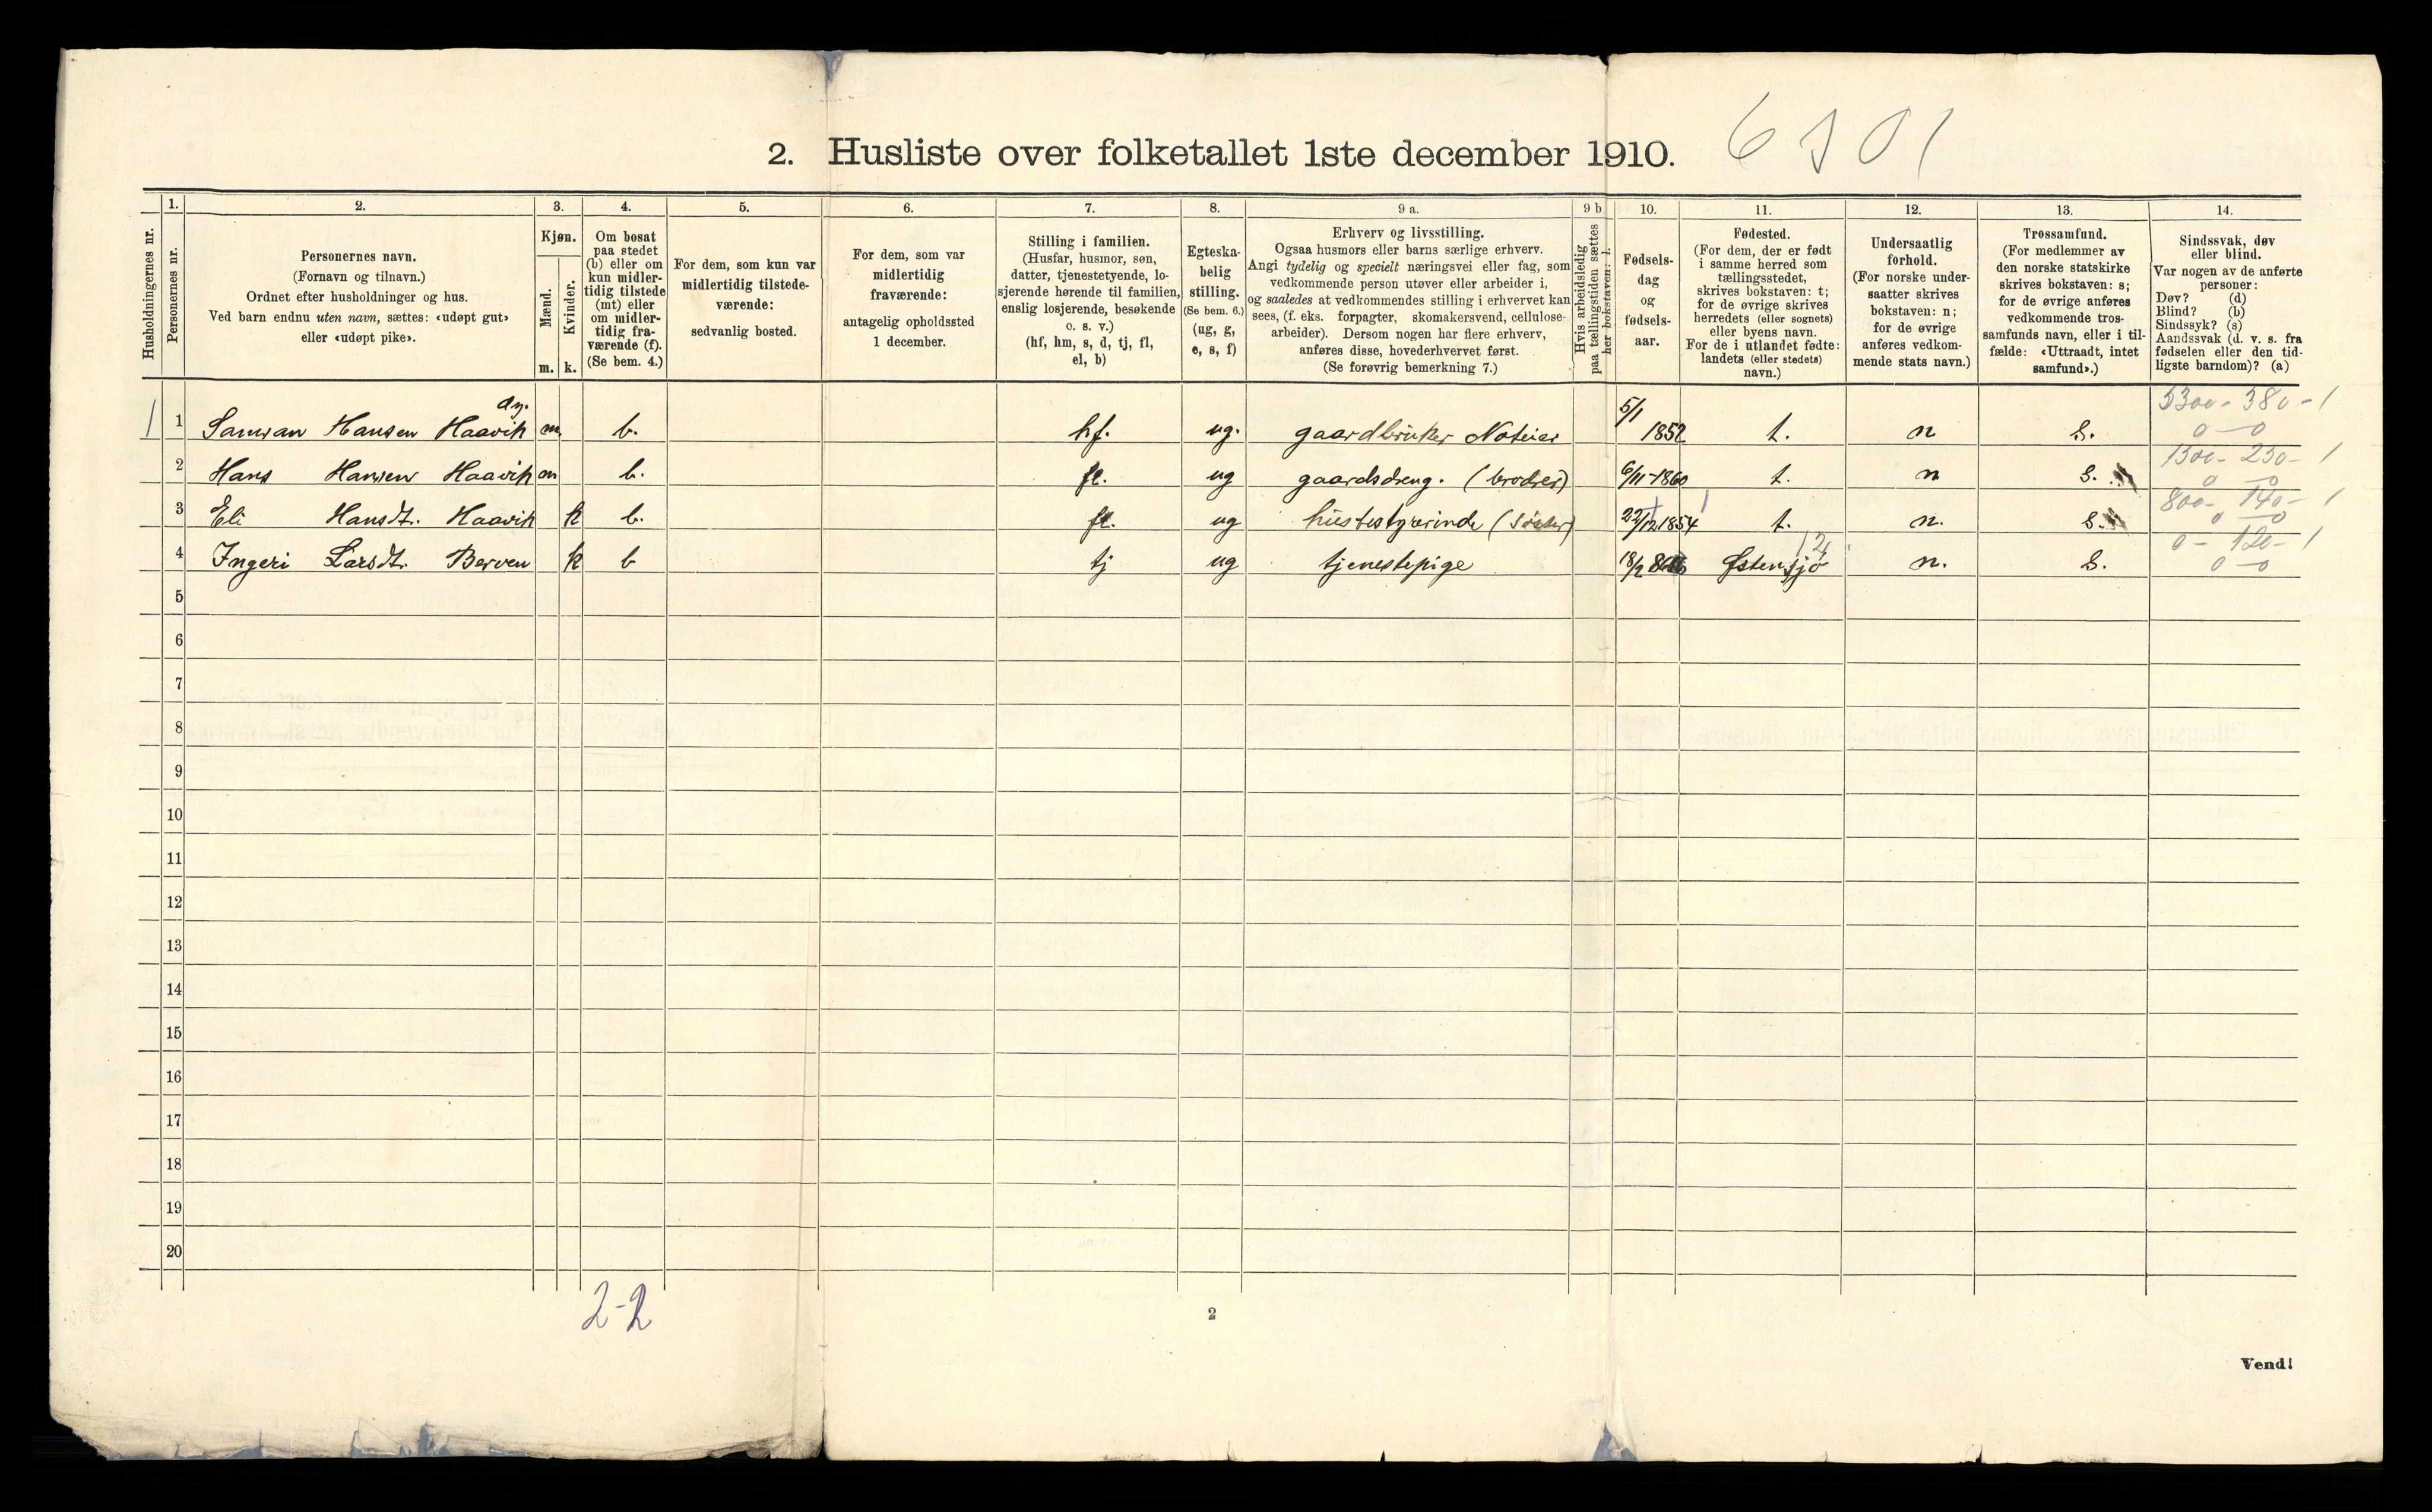 2. Husliste over folketallet 1ste december 1910.
6301
Husholdningernes nr.
1.
Personernes nr.
2.
Personernes navn.
(Fornavn og tilnavn.)
Ordnet efter husholdninger og hus.
Ved barn endnu uten navn, sættes: «udøpt gut»
eller «udøpt pike».
3.
Kjøn.
Mænd.
Kvinder.
m. k.
4.
Om bosat
paa stedet
(b) eller om
kun midler-
tidig tilstede
(mt) eller
om midler-
tidig fra-
værende (f).
(Se bem. 4.)
5.
For dem, som kun var
midlertidig tilstede-
værende:
sedvanlig bosted.
6.
For dem, som var
midlertidig
fraværende:
antagelig opholdssted
1 december.
7.
Stilling i familien.
(Husfar, husmor, søn,
datter, tjenestetyende, lo-
sjerende hørende til familien,
enslig losjerende, besøkende
o. s. v.)
(hf, hm, s, d, tj, fl,
el, b)
8.
Egteska-
belig
stilling.
(Se bem. 6.)
(ug, g,
e, s, f)
9 a.
Erhverv og livsstilling.
Ogsaa husmors eller barns særlige erhverv.
Angi tydelig og specielt næringsvei eller fag, som
vedkommende person utøver eller arbeider i,
og saaledes at vedkommendes stilling i erhvervet kan
sees, (f. eks. forpagter, skomakersvend, cellulose-
arbeider). Dersom nogen har flere erhverv,
anføres disse, hovederhvervet først.
(Se forøvrig bemerkning 7.)
9 b
Hvis arbeidsledig
paa tællingstiden sættes
her bokstaven: l.
10.
Fødsels-
dag
og
fødsels-
aar.
11.
Fødested.
(For dem, der er født
i samme herred som
tællingsstedet,
skrives bokstaven: t;
for de øvrige skrives
herredets (eller sognets)
eller byens navn.
For de i utlandet fødte:
landets (eller stedets)
navn.)
12.
Undersaatlig
forhold.
(For norske under-
saatter skrives
bokstaven: n;
for de øvrige
anføres vedkom-
mende stats navn.)
13.
Trossamfund.
(For medlemmer av
den norske statskirke
skrives bokstaven: s;
for de øvrige anføres
vedkommende tros-
samfunds navn, eller i til-
fælde: «Uttraadt, intet
samfund».)
14.
Sindssvak, døv
eller blind.
Var nogen av de anførte
personer:
Døv? (d)
Blind? (b)
Sindssyk? (s)
Aandssvak (d. v. s. fra
fødselen eller den tid-
ligste barndom)? (a)
1 1 Hansen Haavik m. b. hf. ug. gaardbruker 5/1 1852 t. n s. 5300- 380-1
0 - 0
2 Hans Hansen Haavik m b. fl. ug gaardsdreng. (broder) 6/11-1860 t. n s. 1300- 250-1
0 - 0
3 Eli Hansdt. Haavik k b. fl. ug husbestyrerinde (søster) 22/12 1854 t. n. s. 800- 140-1
0 - 0
4 Ingeri Larsdt. Berven k b tj ug tjenestepige 18/2 Østensjö n. s. 0- 120-1
0 - 0
5
6
7
8
9
10
11
12
13
14
15
16
17
18
19
20
2-2
2
Vend!